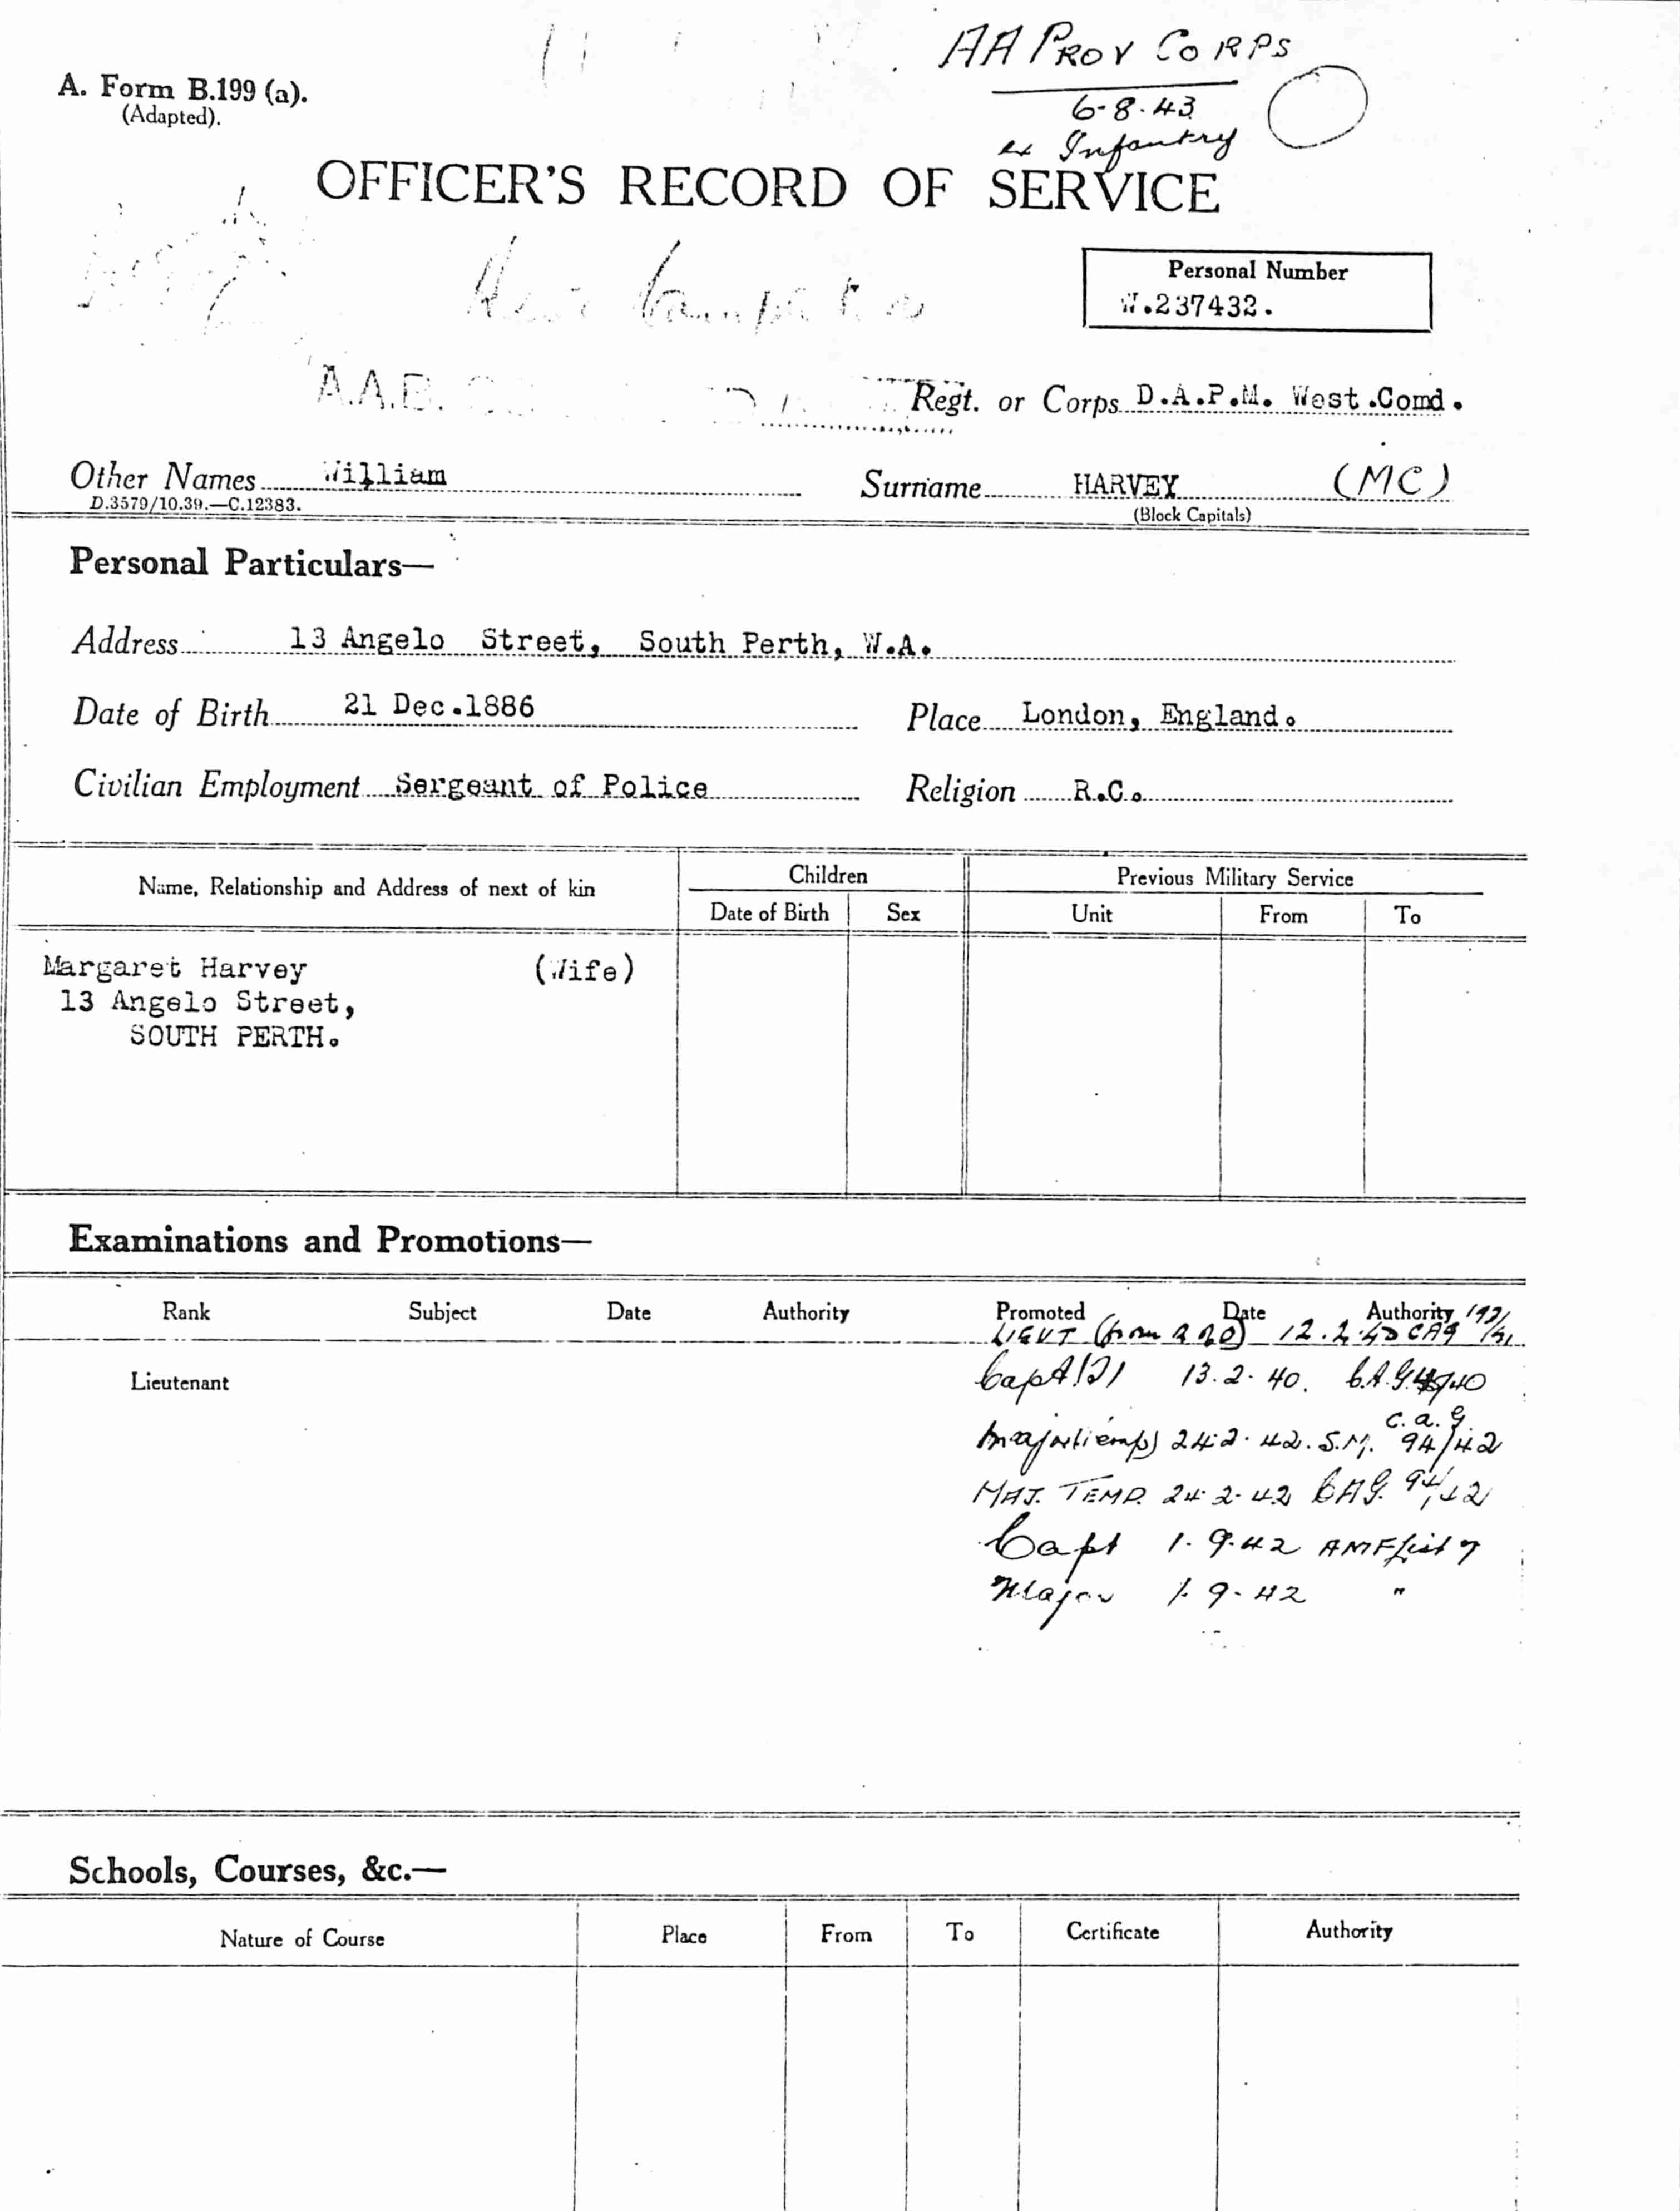 AA PROV CORPS
A. Form B.199 (a).
(Adapted).
6-8-43
ex Infantry
OFFICER'S RECORD OF SERVICE
Personal Number
W.237432.
A.A.B.
Regt. or Corps D.A.P.M. West.Comd.
Other Names William Surname HARVEY (MC)
D.3579/10.39.—C.12383. (Block Capitals)
Personal Particulars—
Address 13 Angelo Street, South Perth, W.A.
Date of Birth 21 Dec.1886 Place London, England.
Civilian Employment Sergeant of Police Religion R.C.
Name, Relationship and Address of next of kin Children Previous Military Service
Date of Birth Sex Unit From To
Margaret Harvey (Wife)
13 Angelo Street,
SOUTH PERTH.
Examinations and Promotions—
Rank Subject Date Authority Promoted Date Authority
LIEUT (from 12.2.40 CAG
Lieutenant Capt 13.2.40. C.A.G.
c.a.g.
Major (temp) 24.2.42. S.M. 94/42
MAJ. TEMP. 24.2.42 CAG. 94/42
Capt 1.9.42 AMF List 7
Major 1.9.42 "
Schools, Courses, &c.—
Nature of Course Place From To Certificate Authority